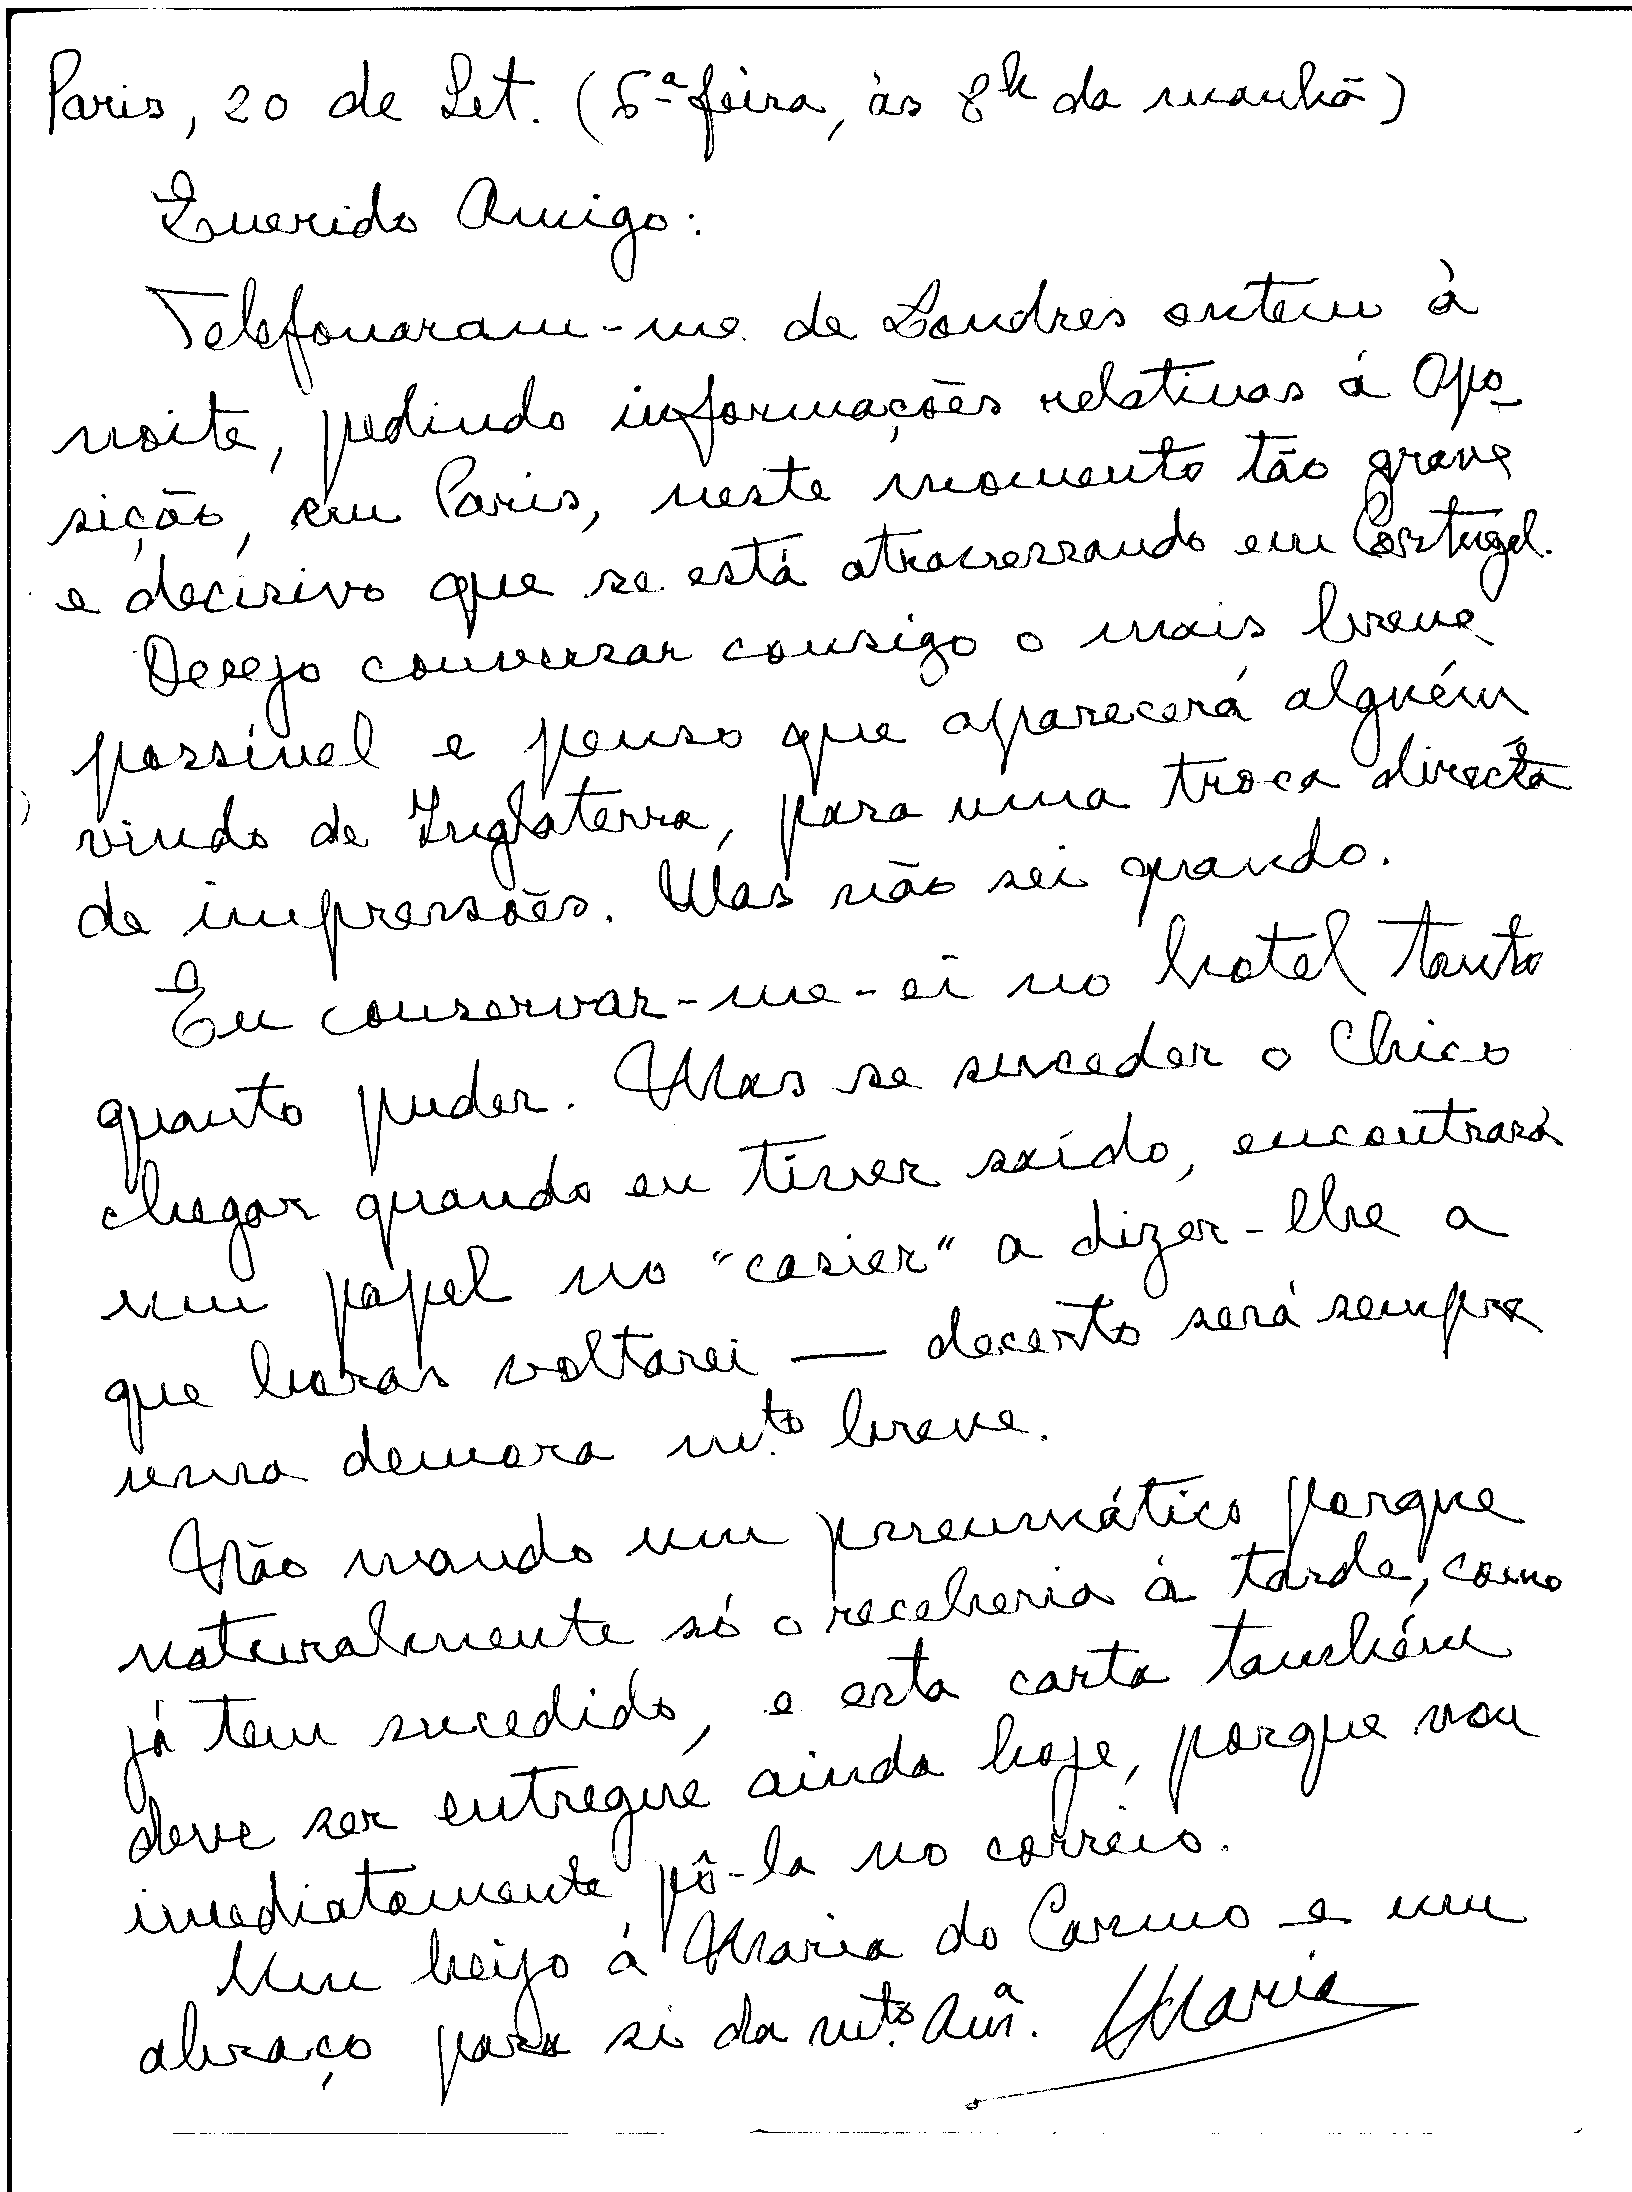 Paris, 20 de Set. (6ª feira, às 8h da manhã)
Querido Amigo:
Telefonaram-me de Londres ontem à
noite, pedindo informações relativas á Opo-
sição, em Paris, neste momento tão grave
e decisivo que se está atravessando em Portugal.
Desejo conversar consigo o mais breve
possível e penso que aparecerá alguém
vindo de Inglaterra, para uma troca directa
de impressões. Mas não sei quando.
Eu conservar-me-ei no hotel tanto
quanto puder. Mas se suceder o Chico
chegar quando eu tiver saído, encontrará
um papel no "casier" a dizer-lhe a
que horas voltarei — decerto será sempre
uma demora mto. breve.
Não mando um pneumático porque
naturalmente só o receberia à tarde, como
já tem sucedido, e esta carta também
deve ser entregue ainda hoje, porque vou
imediatamente pô-la no correio.
Um beijo á Maria do Carmo e um
abraço para si da mto. Amª. Maria